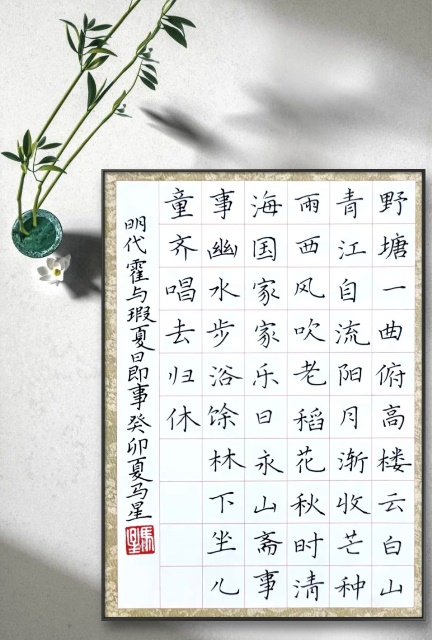 野塘一曲俯高楼云白山
青江自流阳月渐收芒种
雨西风吹老稻花秋时清
海国家家乐日永山斋事
事幽水步浴馀林下坐儿
童齐唱去归休
明代霍与瑕夏日即事癸卯夏马星